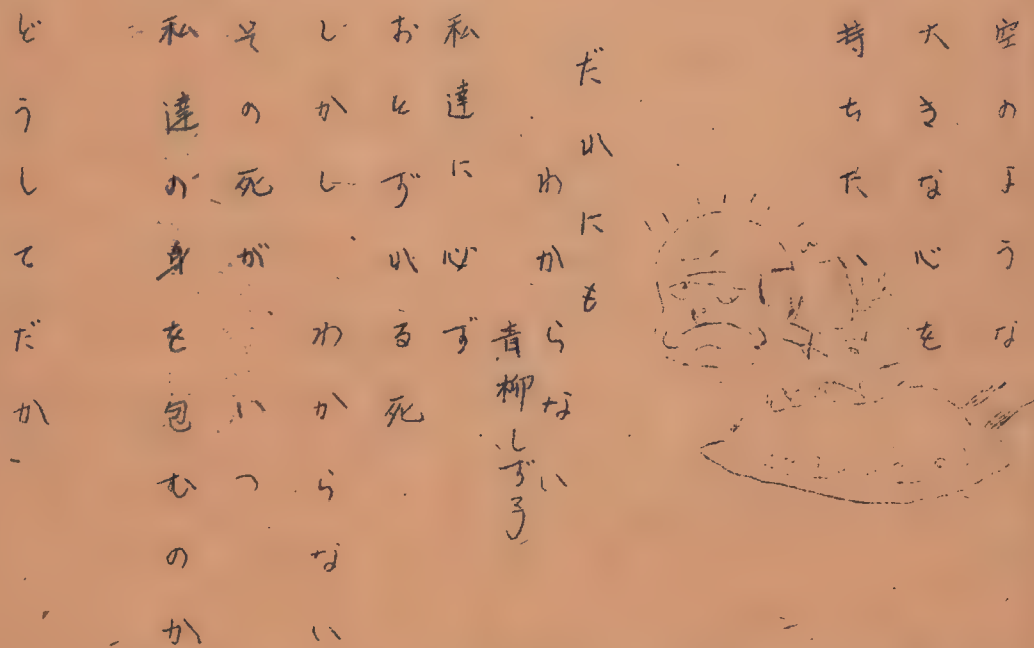 空のような
大きな心を
持ちたい
だれにも
わからない
青柳しず子
私達に必ず
おとずれる死
しかしわからない
その死がいつ
私達の身を包むのか
どうしてだか